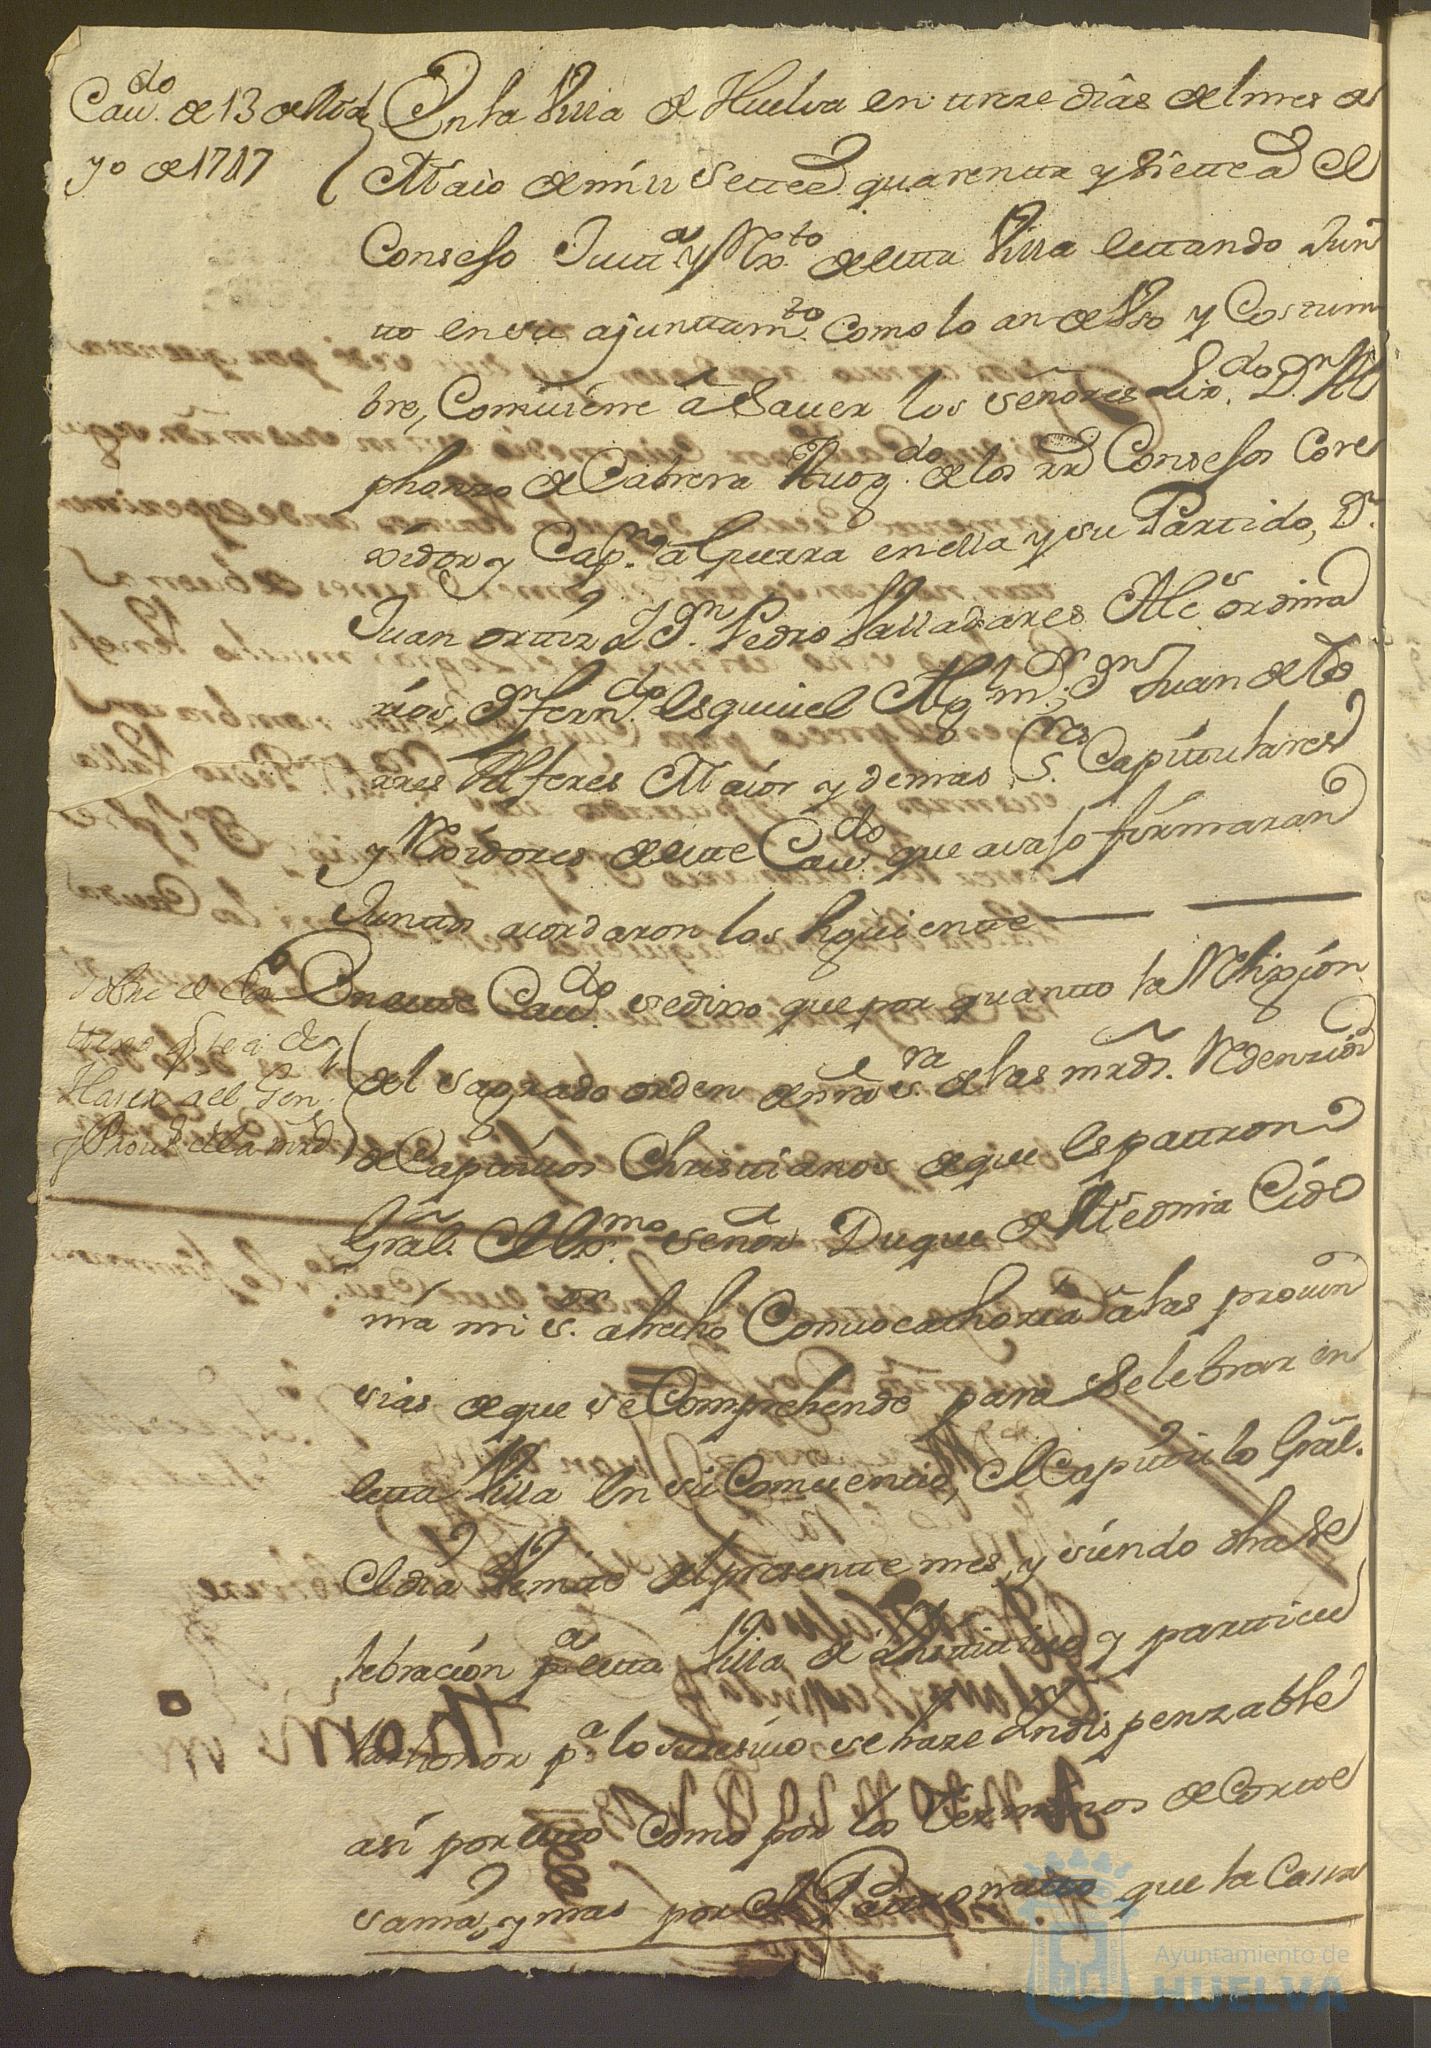 Cavdo. de 13 de Ma
yo de 1747
En la Villa de Huelva en treze dias del mes de
Maio de mill settesd. quarentta y siette ad. el
Consejo Justta. y Rexto. de estta Villa esttando Jun
tto en su ajunttamto. como lo an de Vso y Costum
bre, Comviene â Saver los señores Lizdo. Dn. Al
phonzo de Cabrera Avogdo. de los rrs Consejos Core
xidor y Capn. â Guerra en ella y su Partido, Dn.
Juan orttiz y Dn. Pedro Valladares Alces ordina
rios, Dn. ferndo. Esquivel Algl. mr., Dn. Juan de To
rres Alferes Maior y demas Sres. Capitulares
y Rexidores de estte Cavdo. que avajo firmaran
Junttos acordaron los siguientte
Sobre el
Haser a el Gen.
y Provl. de la mrd.
En estte Cavdo. se dixo que por quantto la Relixion
del sagrado orden de nra. sra. de las mrds. Redenzion
de Capttivos Christtianos de que es pattron
Gral. el Exmo. señor Duque de Medina Cido
nia mi sor. a hecho Convocathoria â las provin
sias de que se Comprehende para Selebrar en
estta Villa En su Comventto, el Capittulo Gral.
el dia Veintte del presentte mes, y siendo dha se
lebracion pa. estta Villa de y partticu
lar honor pa. lo subcesivo se haze Yndispenzable
asi por estto Como por los términos de Cortte
sania, y mas por el Pattronatto que la Cassa
Ayuntamiento de
HUELVA